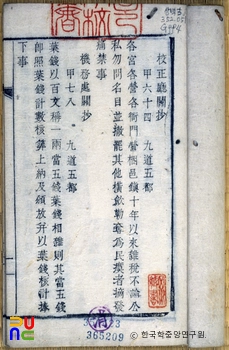 校正廳關抄
甲六十四 九道五都
各宮各營各衙門營梱邑鎭十年以來雜稅不論公
私勿問名目並撤罷其他橫飮勒奪爲民瘼者摘發
痛禁事
機務處關抄
甲七八 九道五都
葉錢以百文稱一兩當五錢葉錢相雜則其當五錢
郎照葉錢計數核算上納及頒放升以葉錢核計擧
下事
365209
한국학중앙연구원